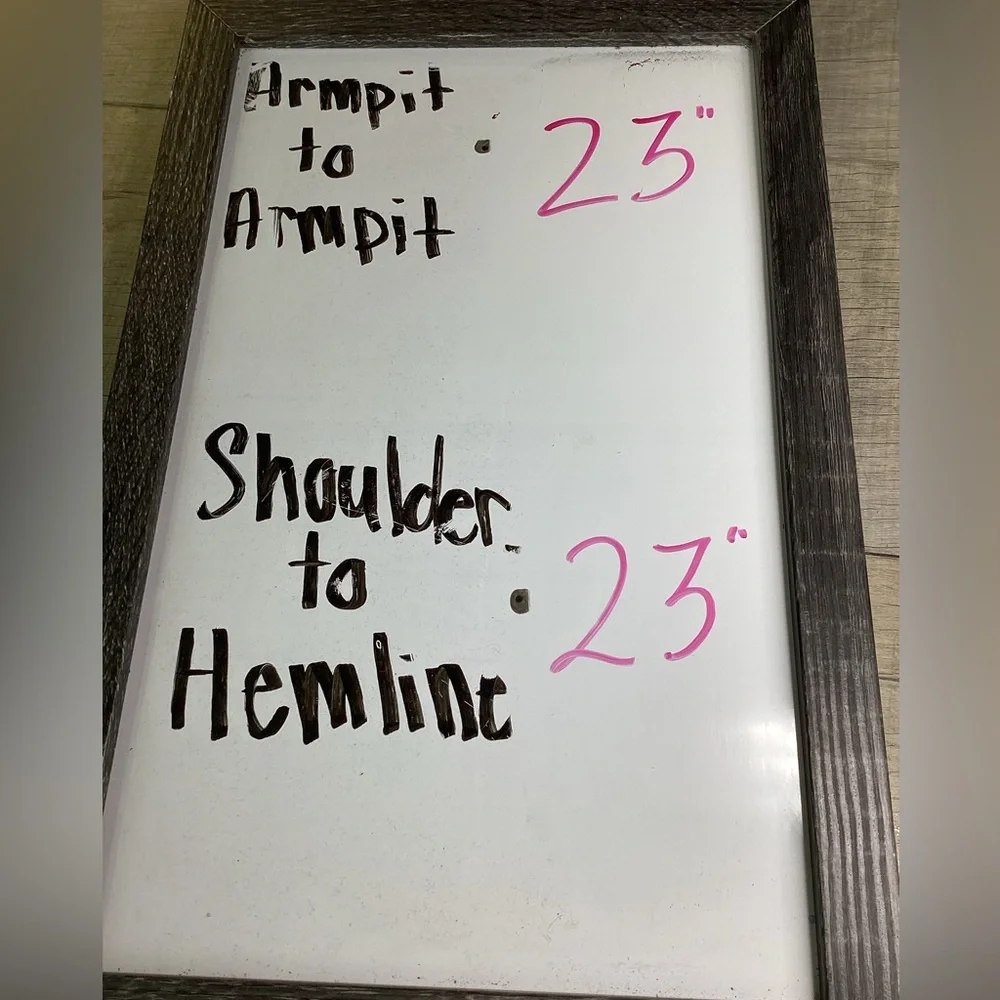 Armpit
to
Armpit
23"
Shoulder
to
Hemline
23"